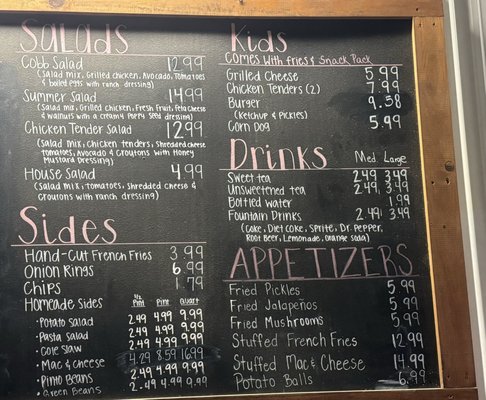 Salads
Cobb Salad 12.99
(Salad mix, Grilled chicken, Avocado, Tomatoes
& boiled eggs with ranch dressing)
Summer Salad 14.99
(Salad mix, Grilled chicken, Fresh Fruit, feta cheese
& walnuts with a creamy poppy seed dressing)
Chicken Tender Salad 12.99
(Salad mix, chicken tenders, shredded cheese
tomatoes, avocado & croutons with Honey
Mustard Dressing)
House Salad 4.99
(Salad mix, tomatoes, shredded cheese &
croutons with ranch dressing)
Sides
Hand-Cut French Fries 3.99
Onion Rings 6.99
Chips 1.79
Homeade Sides 1/2 Pint Pint Quart
• Potato Salad 2.49 4.99 9.99
• Pasta Salad 2.49 4.99 9.99
• Cole Slaw 2.49 4.99 9.99
• Mac & Cheese 4.29 8.59 16.99
• Pinto Beans 2.49 4.99 9.99
• Green Beans 2.49 4.99 9.99
Kids
Comes with fries & Snack Pack
Grilled Cheese 5.99
Chicken Tenders (2) 7.99
Burger 9.58
(Ketchup & Pickles)
Corn Dog 5.99
Drinks Med. Large
Sweet tea 2.49 3.49
Unsweetened tea 2.49 3.49
Bottled water 1.99
Fountain Drinks 2.49 3.49
(Coke, Diet Coke, Sprite, Dr. Pepper,
Root Beer, Lemonade, Orange Soda)
Appetizers
Fried Pickles 5.99
Fried Jalapeños 5.99
Fried Mushrooms 5.99
Stuffed French Fries 12.99
Stuffed Mac & Cheese 14.99
Potato Balls 6.99